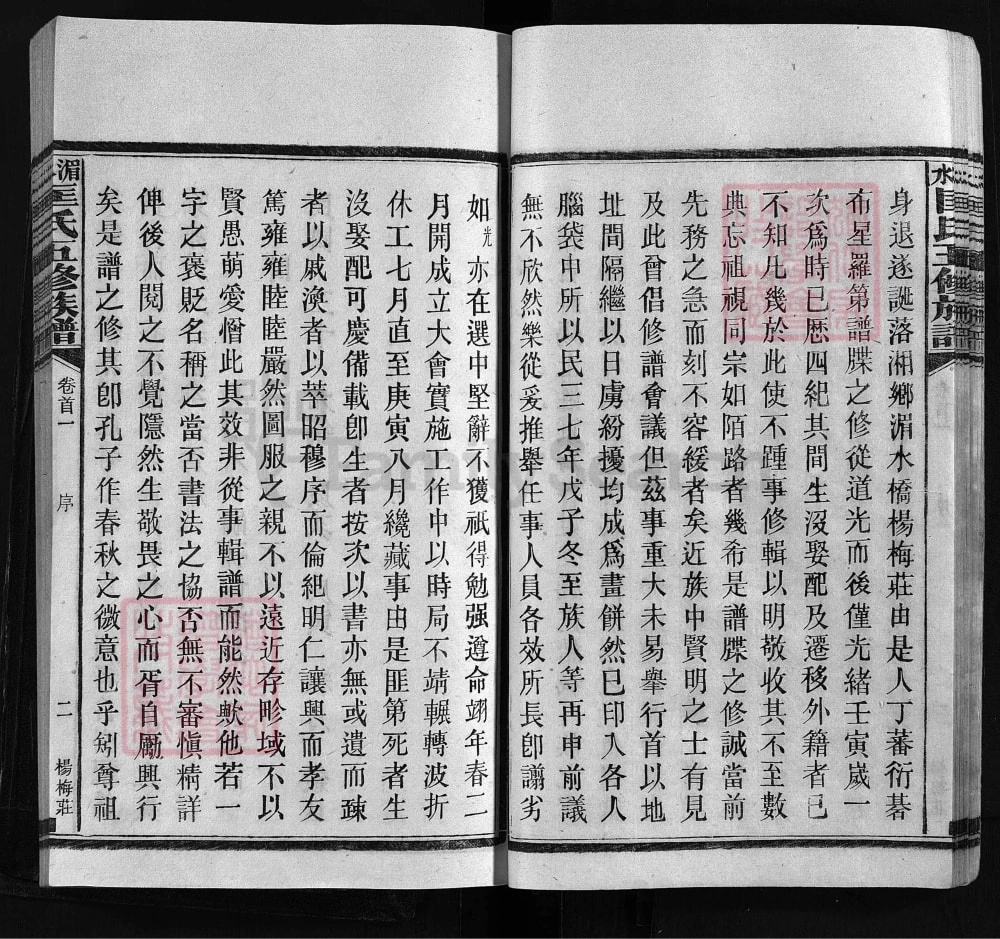 水匡氏五修族譜
身退遂誕落湘鄉湄水橋楊梅莊由是人丁蕃衍碁
布星羅第譜牒之修從道光而後僅光緒壬寅嵗一
次爲時已歷四紀其間生沒娶配及遷移外籍者已
不知凡幾於此使不踵事修輯以明敬收其不至數
典忘祖視同宗如陌路者幾希是譜牒之修誠當前
先務之急而刻不容緩者矣近族中賢明之士有見
及此曾倡修譜會議但茲事重大未易舉行首以地
址間隔繼以日虜紛擾均成爲畫餅然已印入各人
腦袋中所以民三七年戊子冬至族人等再申前議
無不欣然樂從爰推舉任事人員各效所長卽謭劣
如光亦在選中堅辭不獲祇得勉强遵命翊年春二
月開成立大會實施工作中以時局不靖輾轉波折
休工七月直至庚寅八月纔藏事由是匪第死者生
沒娶配可慶備載卽生者按次以書亦無或遺而疎
者以戚渙者以萃昭穆序而倫紀明仁讓興而孝友
篤雍雍睦睦嚴然圖服之親不以遠近存畛域不以
賢愚萌愛憎此其效非從事輯譜而能然歟他若一
字之褒貶名稱之當否書法之協否無不審愼精詳
俾後人閱之不覺隱然生敬畏之心而胥自勵興行
矣是譜之修其卽孔子作春秋之微意也乎矧尊祖
湄匡氏五修族譜
卷首一
序
二
楊梅莊